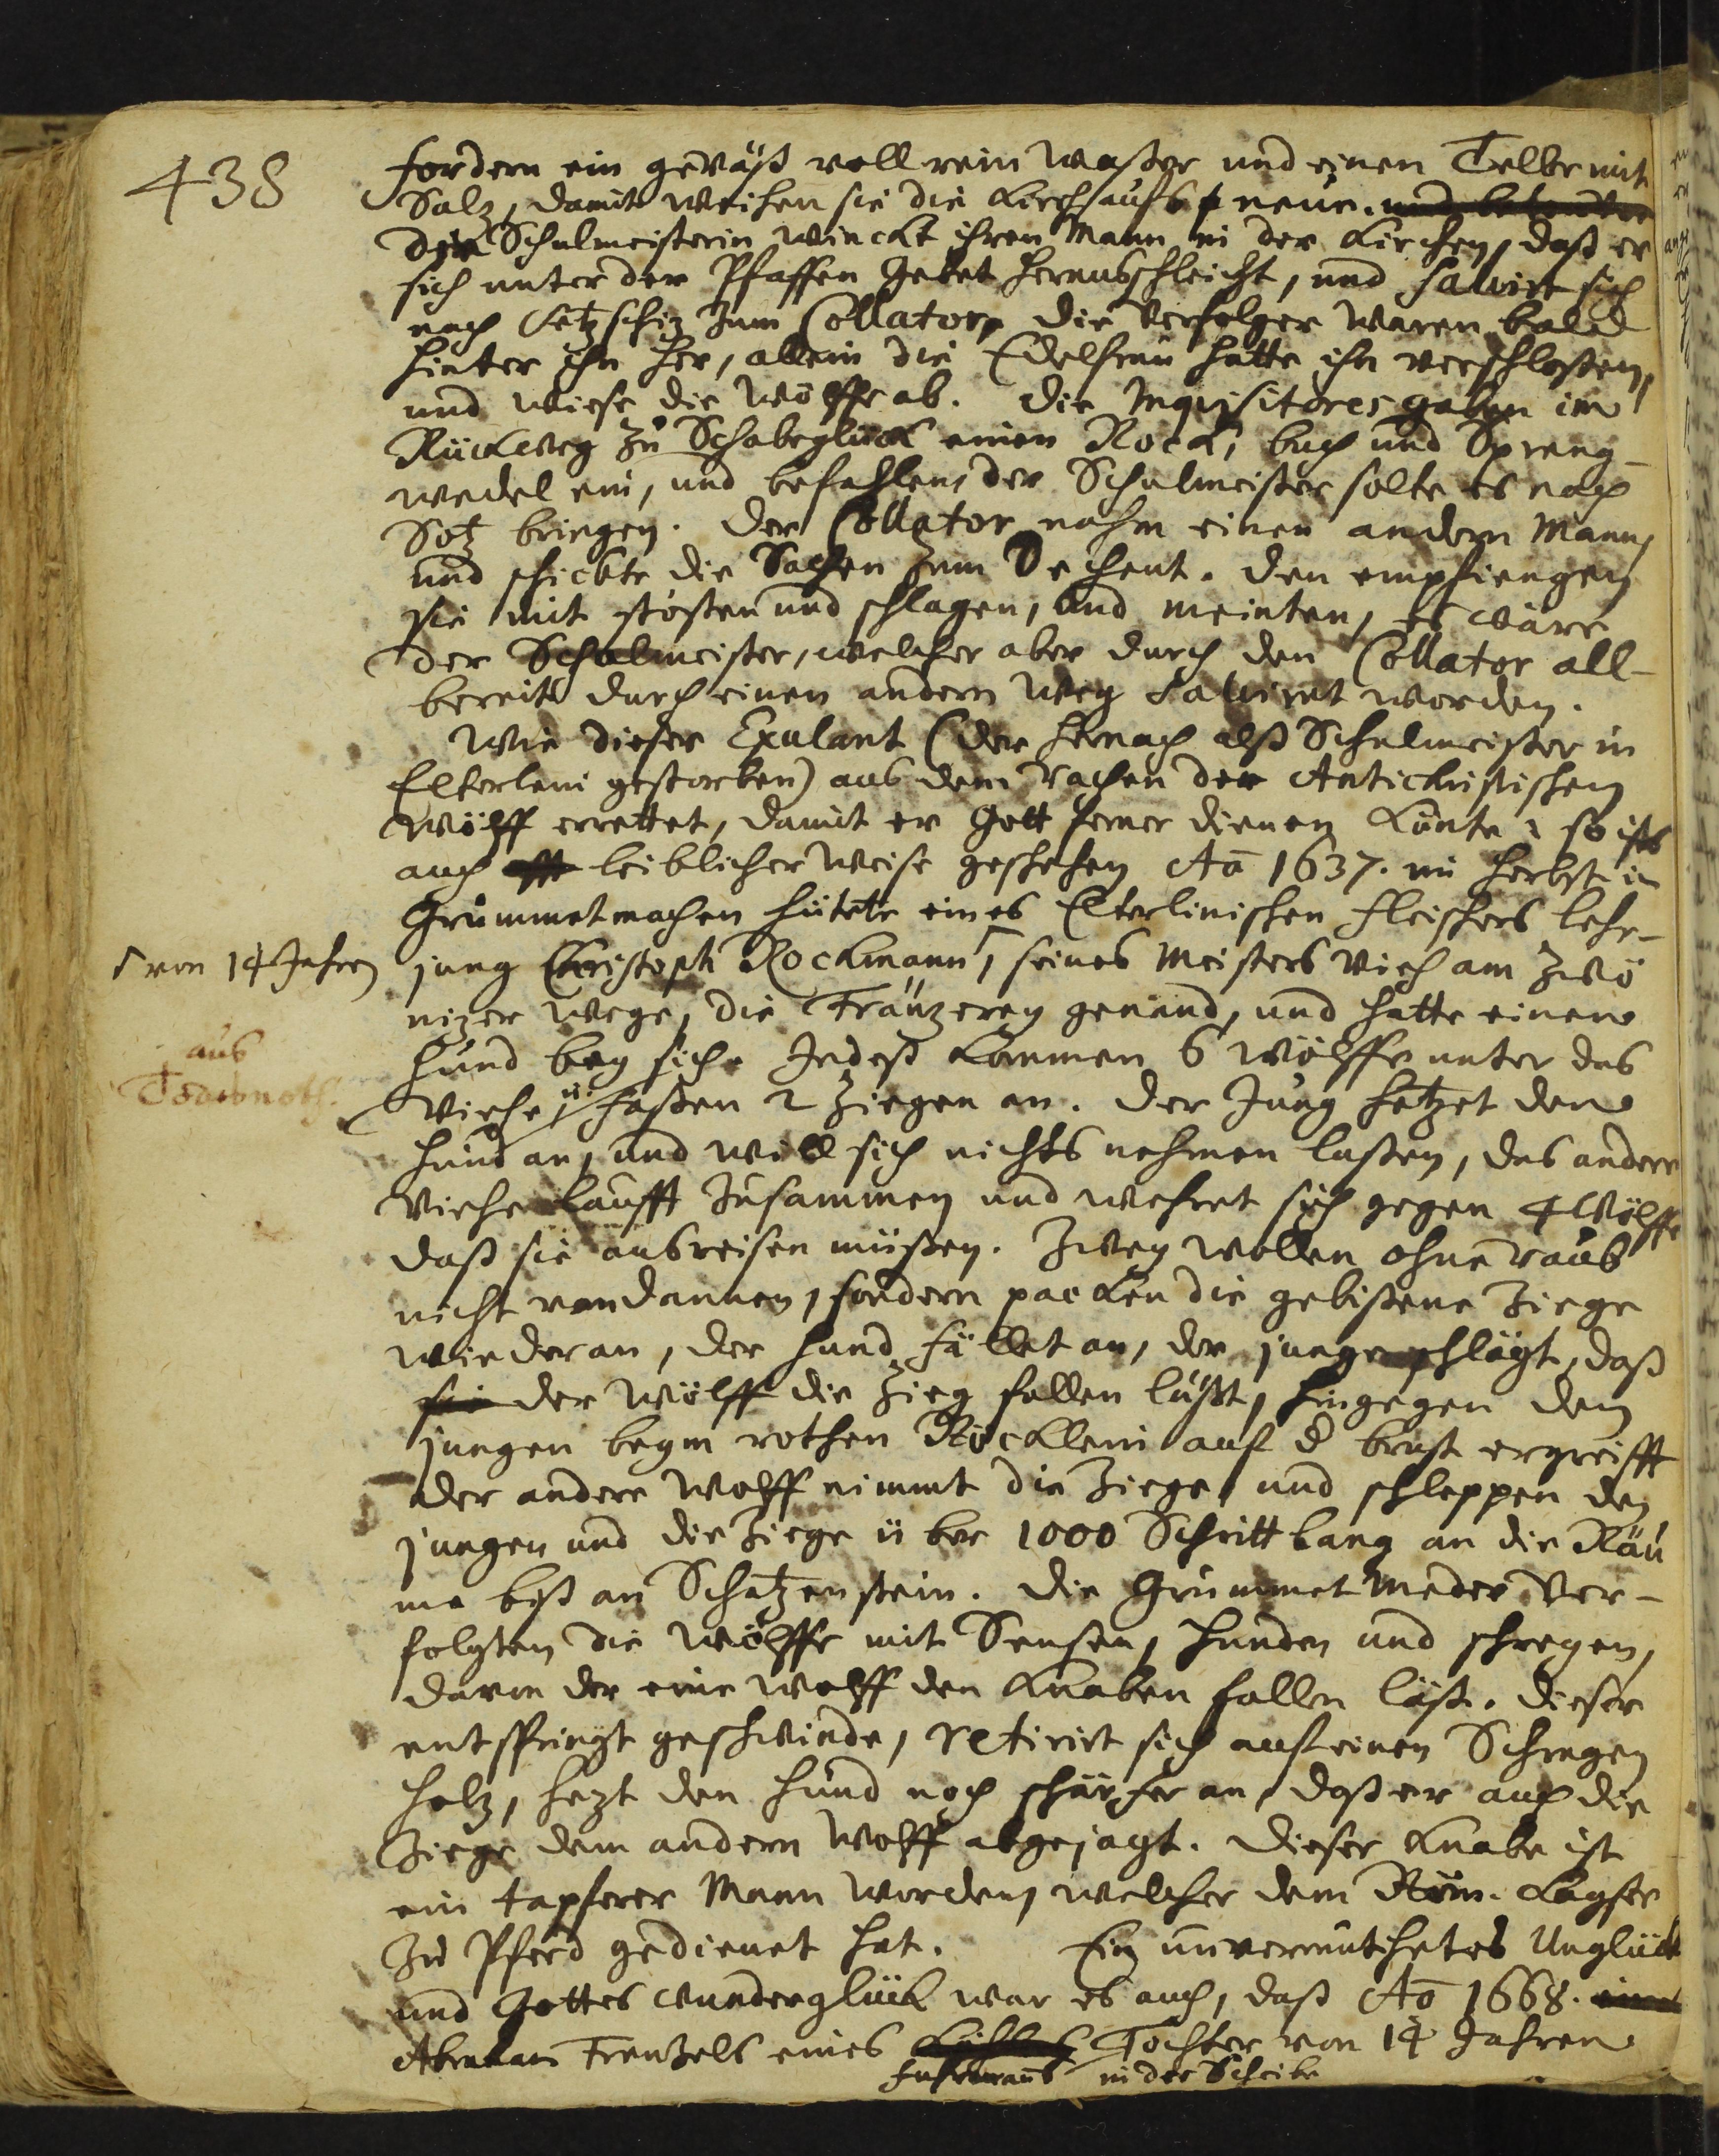 438
fordern ein geväß voll rein Waßer und einen Teller mit
Saltz, damit weihen sie die Kirch aufs neue.
die Schulmeisterin winckt ihren Mann in der Kirchen, daß er
sich unter der Pfaffen Gebet heraußschleicht, und salvirt sich
nach Letzschiz zum Collator, die Verfolger waren bald
hinter ihn her, allein die Edelfrau hatte ihn verschloßen,
und wiese die Wölffe ab. Die Inquisitores gaben im
Rückweg zu Schabeglück einen Rock, buch und Spreng-
wedel ein, und befahlen, der Schulmeister solte es nach
Sotz bringen. Der Collator nahm einen andern Mann,
und schickte die Sachen zum Dechent. Den empfiengen
sie mit stößen und schlagen, und meinten, es wäre
der Schulmeister, welcher aber durch den Collator all-
bereits durch einen andern Weg salviret worden.
Wie dieser Exulant (der hernach alß Schulmeister in
Elterlein gestorben) aus dem rachen der Antichristischen
Wölff errettet, damit er Gott ferner dienen könte: so ists
auch leiblicher weise geschehen Aō 1637. im Herbst in
Grummetmachen hütete eines Elterlinischen Fleischers lehr-
von 14 Jahren
jung Christoph Rockmann, seines Meisters Vieh am Zwö
nizer wege, die Fränzerey genand, und hatte einen
aus
Todesnoth.
Hund bey sich. Indeß kommen 6 Wölffe unter das
Viehe, u. faßen 2 Ziegen an. Der Jung hetzet den
Hund an, und will sich nichts nehmen laßen, das andere
Viehe laufft zusammen und wehret sich gegen 4 Wölffe
daß sie ausreisen müßen. Zwey wollen ohne raub
nicht von dannen, sondern packen die gebißene Ziege
wieder an, der Hund fället an, der junge schlägt, daß
der Wölff die Zieg fallen läßt, hingegen den
jungen beym rothen Röcklein auf d brust ergreifft
der andere Wolff nimmt die Ziege, und schleppen den
jungen und die Ziege über 1000 Schritt lang an die Räu
me biß an Schatzenstein. Die Grummet Meder ver-
folgten die Wölffe mit Sensen, Hunden und schreyen,
davon der eine Wolff den Knaben fallen läst. Dieser
entspringt geschwinde, retirirt sich auf einen Schragen
Holz, hezt den Hund noch schärfer an, daß er auch die
Ziege dem andern Wolff abgejagt. Dieser Knabe ist
ein tapferer Mann worden, welcher dem Röm. Kayser
zu Pferd gedienet hat. Ein unvermuthetes Unglück
und Gottes wunderglück war es auch, daß Aō 1668.
Abraham Frentzels eines Tochter von 14 Jahren
Fuhrmanns in der Scheibe